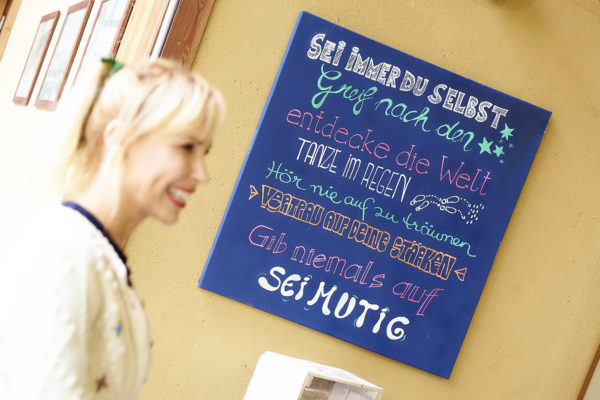 SEI IMMER DU SELBST
Greif nach den
entdecke die Welt
TANZE IM REGEN
Hör nie auf zu träumen
VERTRAU AUF DEINE STÄRKEN
Gib niemals auf
SEI MUTIG